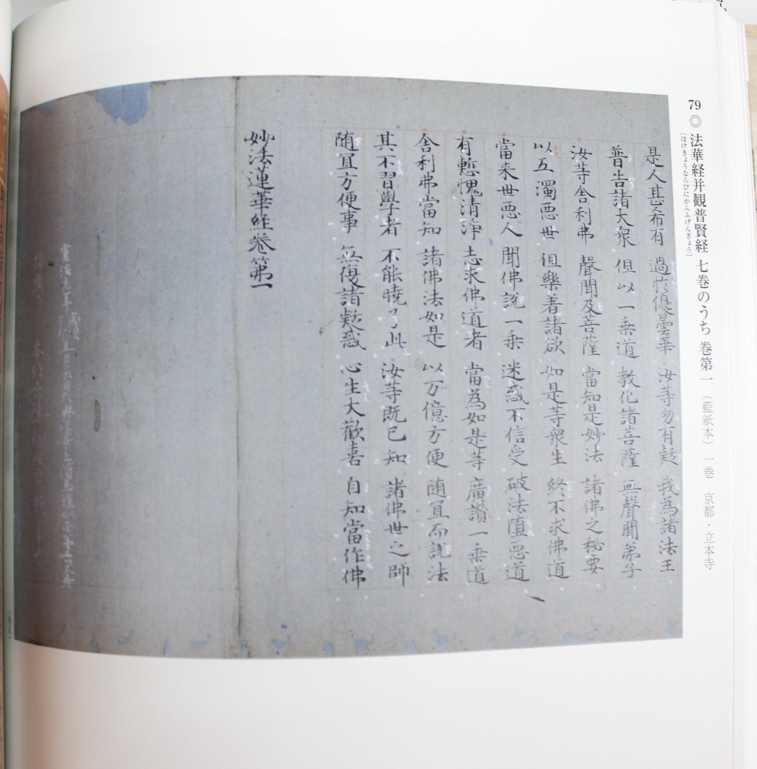 79 ◎ 法華経并観普賢経 七巻のうち 巻第一 （藍紙本） 一巻 京都・立本寺
［ほけきょうならびにかんふげんぎょう］
是人甚希有 過於優曇華 汝等勿有疑 我為諸法王
普告諸大衆 但以一乗道 教化諸菩薩 無聲聞弟子
汝等舎利弗 聲聞及菩薩 當知是妙法 諸佛之秘要
以五濁悪世 但樂著諸欲 如是等衆生 終不求佛道
當来世悪人 聞佛説一乗 迷惑不信受 破法堕悪道
有慙愧清浄 志求佛道者 當為如是等 廣讃一乗道
舎利弗當知 諸佛法如是 以万億方便 随宜而説法
其不習學者 不能暁了此 汝等既已知 諸佛世之師
随宜方便事 無復諸疑惑 心生大歡喜 自知當作佛
妙法蓮華経巻第一